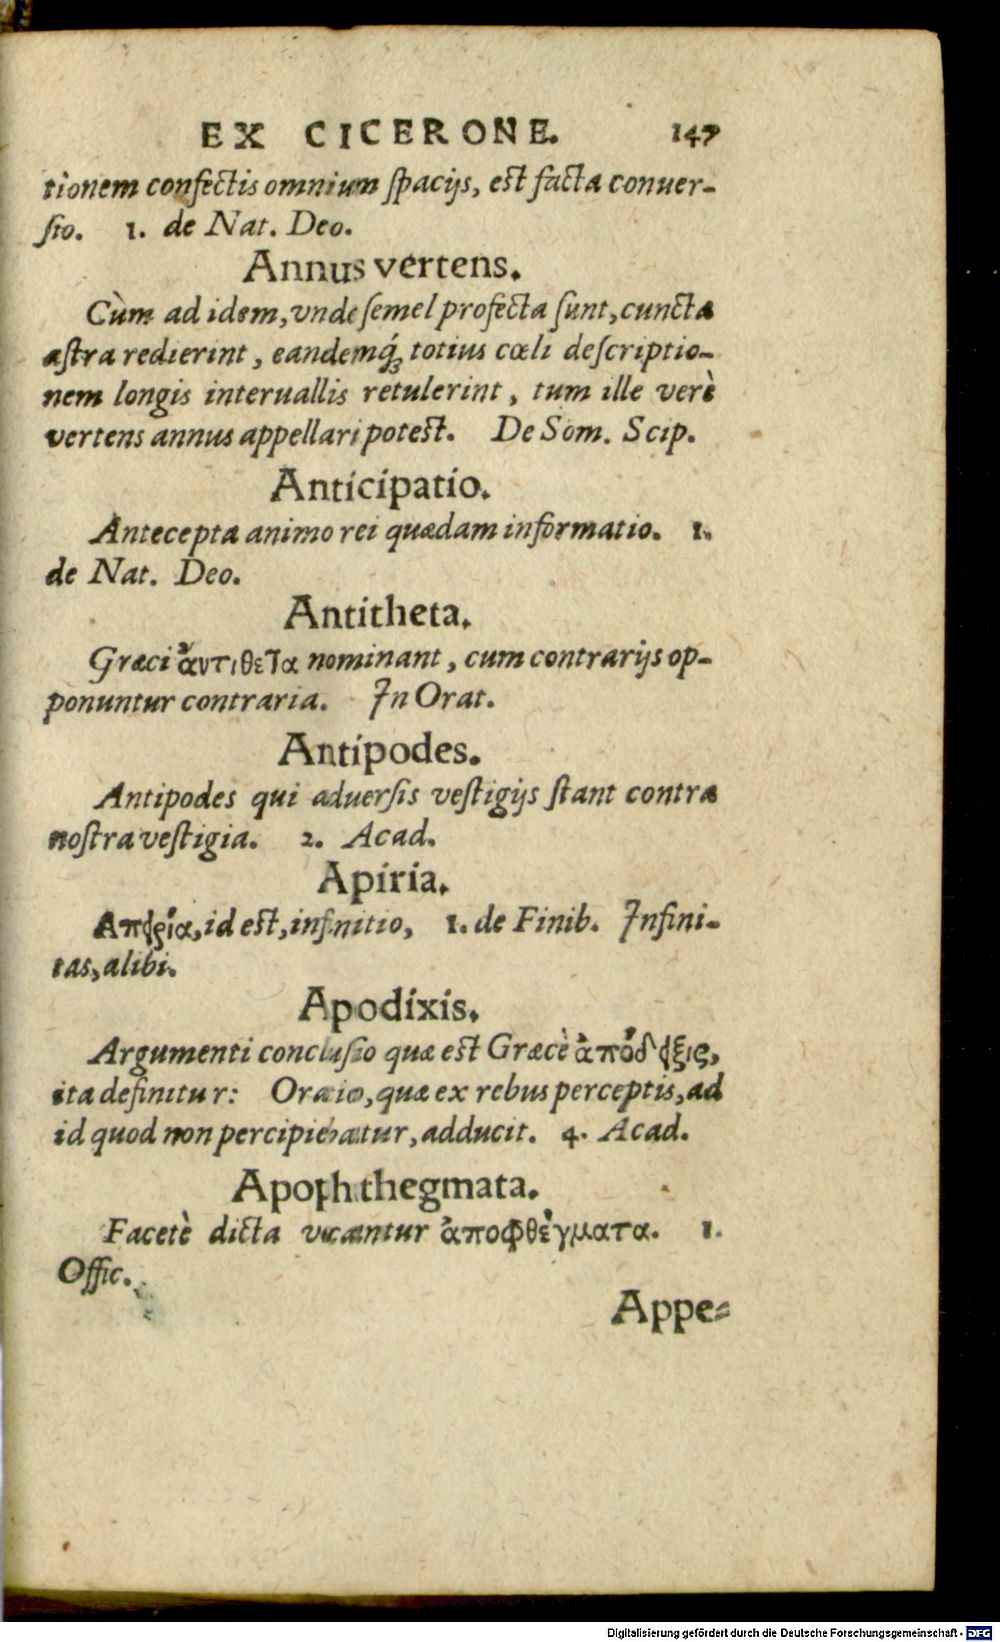 EX CICERONE. 147
tionem confectis omnium ſpacijs, eſt facta conuer-
ſio. 1. de Nat. Deo.
Annus vertens.
Cùm ad idem, vnde ſemel profecta ſunt, cuncta
aſtra redierint, eandemq́ꝫ totius cœli deſcriptio-
nem longis interuallis retulerint, tum ille verè
vertens annus appellari poteſt. De Som. Scip.
Anticipatio.
Antecepta animo rei quædam informatio. 1.
de Nat. Deo.
Antitheta.
Græci ἀντιθετα nominant, cum contrarijs op-
ponuntur contraria. In Orat.
Antipodes.
Antipodes qui aduerſis veſtigijs ſtant contra
noſtra veſtigia. 2. Acad.
Apiria.
Απειρία, id eſt, infinitio, 1. de Finib. Infini-
tas, alibi.
Apodixis.
Argumenti concluſio quæ eſt Græcè ἀπόδειξις,
ita definitur: Oratio, quæ ex rebus perceptis, ad
id quod non percipiebatur, adducit. 4. Acad.
Apophthegmata.
Facetè dicta vocantur ἀποφθέγματα. 1.
Offic.
Appe-
Digitalisierung gefördert durch die Deutsche Forschungsgemeinschaft - DFG